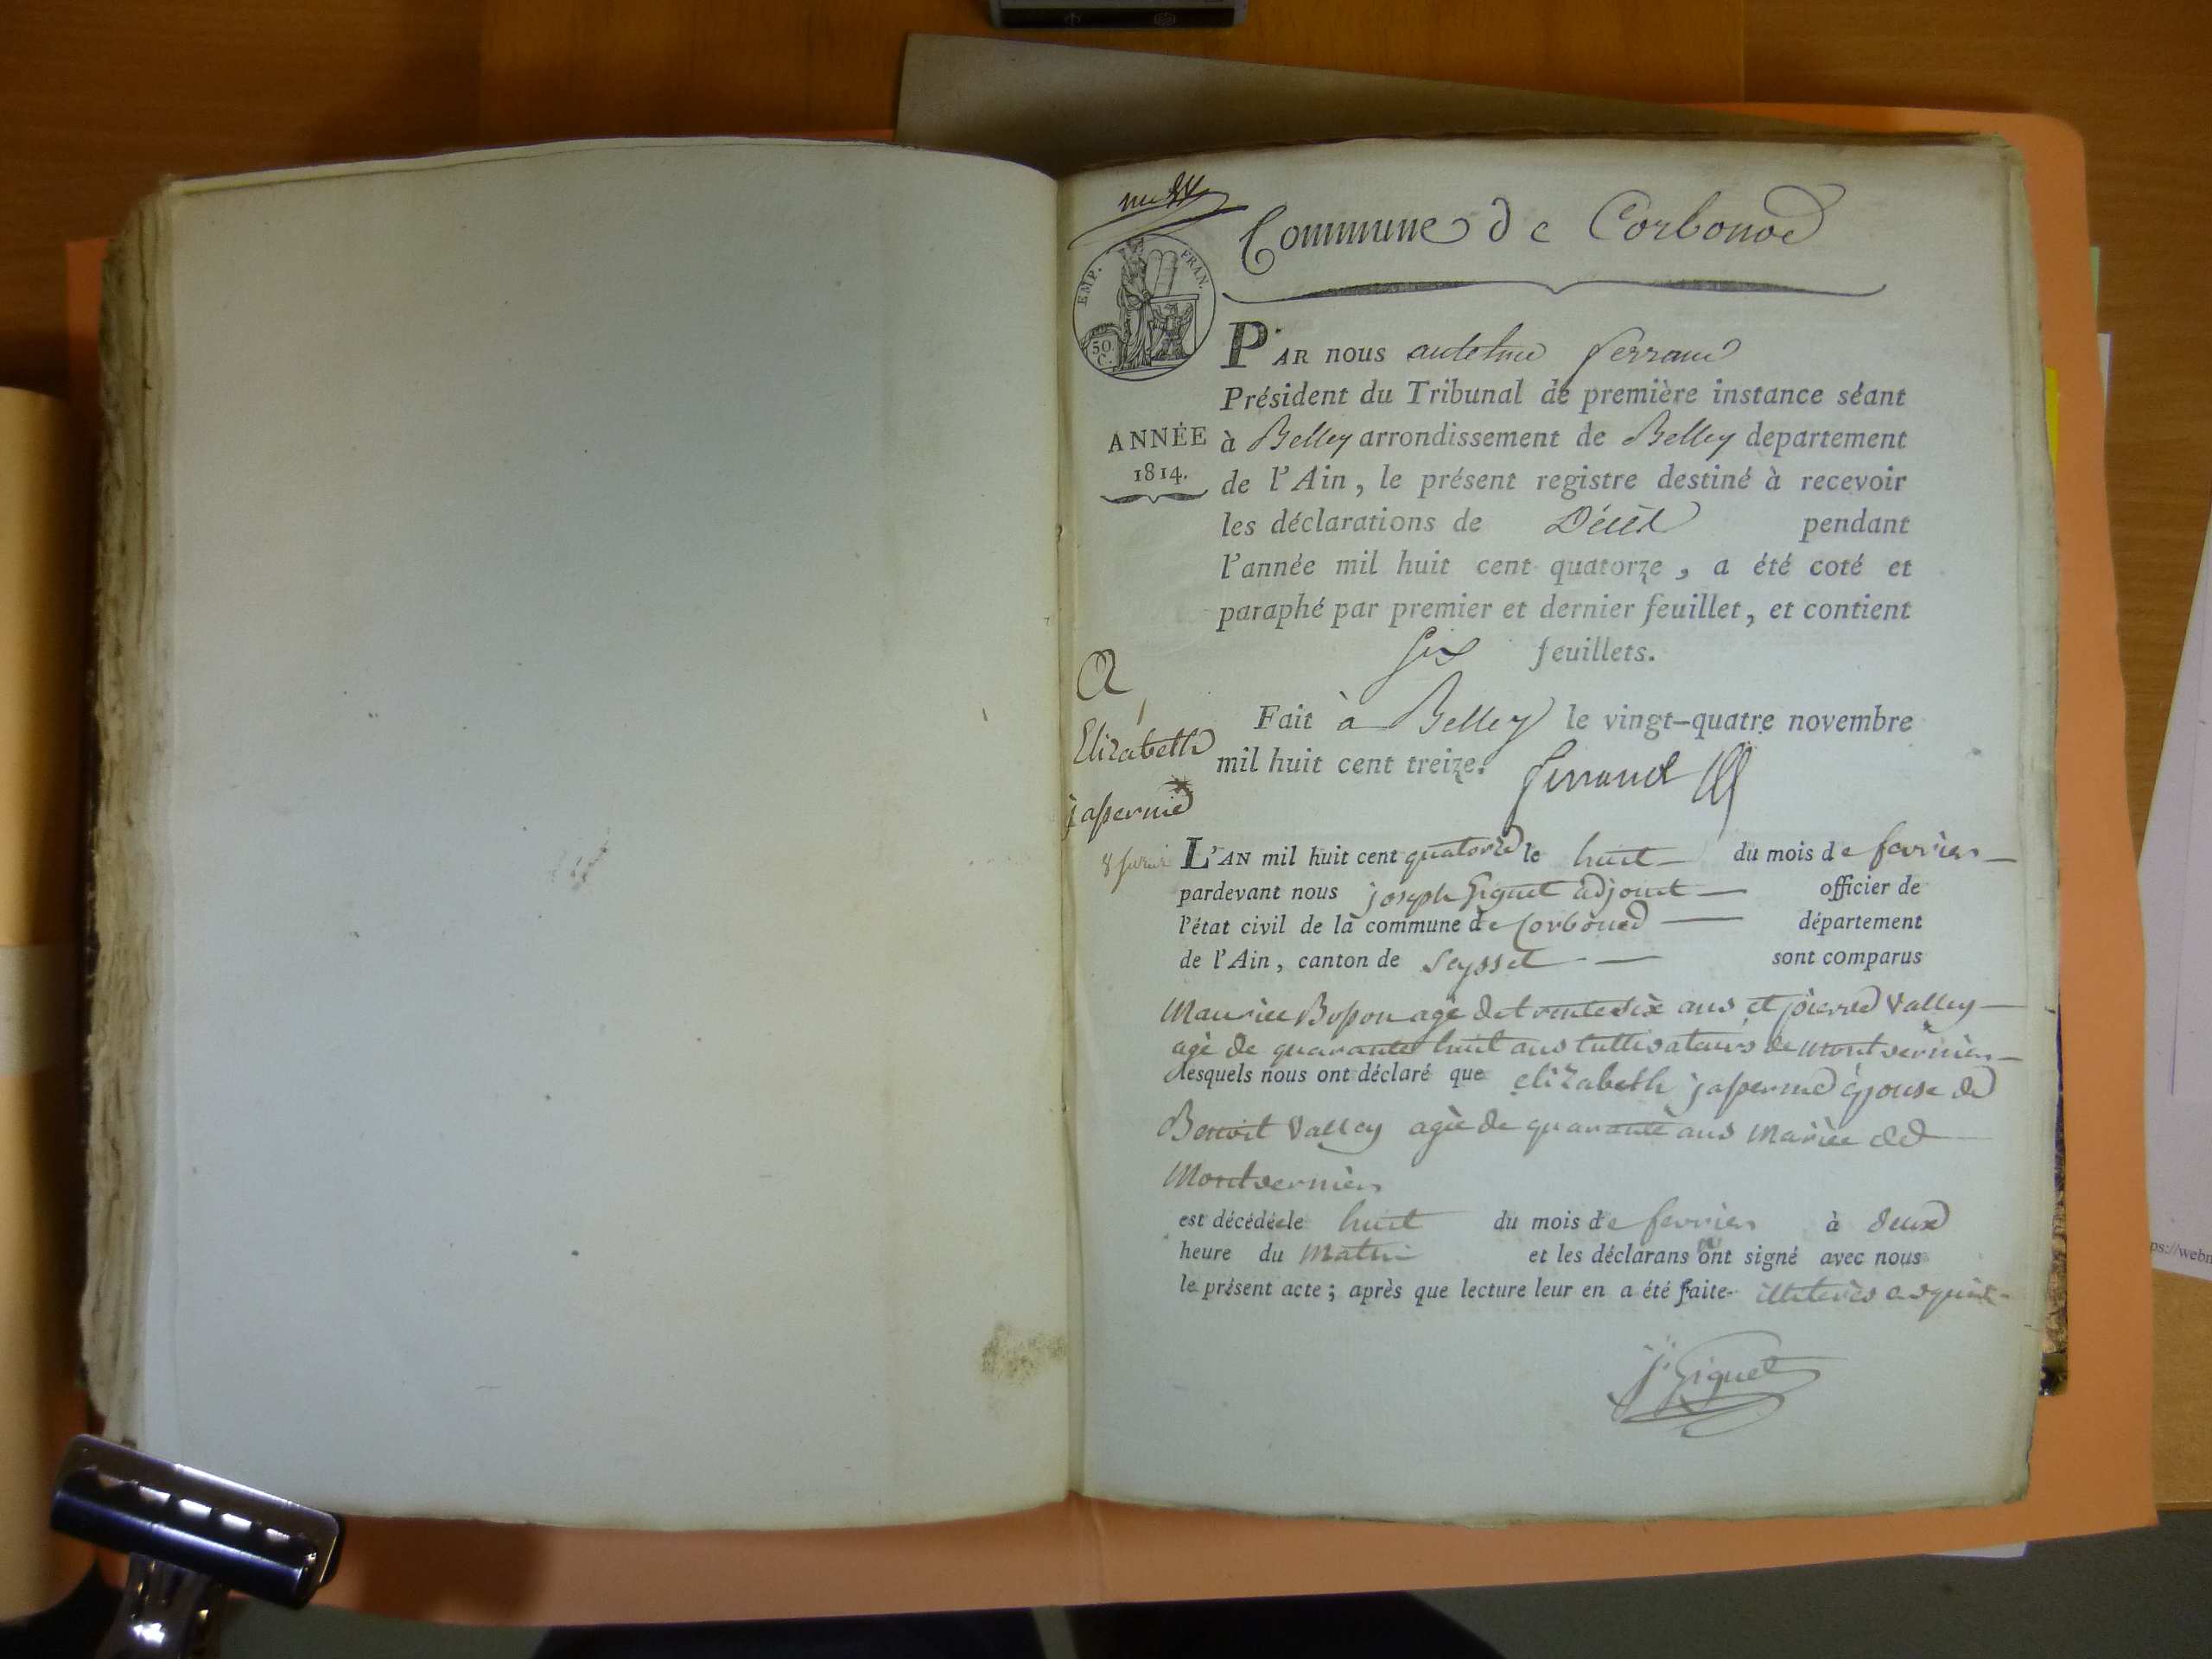 Commune de Corbonod
EMP. FRAN.
50 C.
PAR nous antelme ferrand
Président du Tribunal de première instance séant
ANNÉE
1814.
à Belley arrondissement de Belley departement
de l'Ain, le présent registre destiné à recevoir
les déclarations de Décès pendant
l'année mil huit cent quatorze, a été coté et
paraphé par premier et dernier feuillet, et contient
six feuillets.
Fait à Belley le vingt-quatre novembre
mil huit cent treize.
ferrand
1
Elizabeth
jasperme
8 fevrier
L'AN mil huit cent quatorze le huit du mois de fevrier
pardevant nous joseph Giguet adjoint officier de
l'état civil de la commune de Corbonod département
de l'Ain, canton de Seyssel sont comparus
Maurice Bosson agé de trente six ans et pierre Valley
agé de quarante huit ans cultivateurs de montvernier
lesquels nous ont déclaré que elizabeth jasperme épouse de
Benoit Valley agée de quarante ans Mariée de
Montvernier
est décédée le huit du mois de fevrier à deux
heure du matin et les déclarans ont signé avec nous
le présent acte; après que lecture leur en a été faite illiterés
J. Giguet
ps://webm